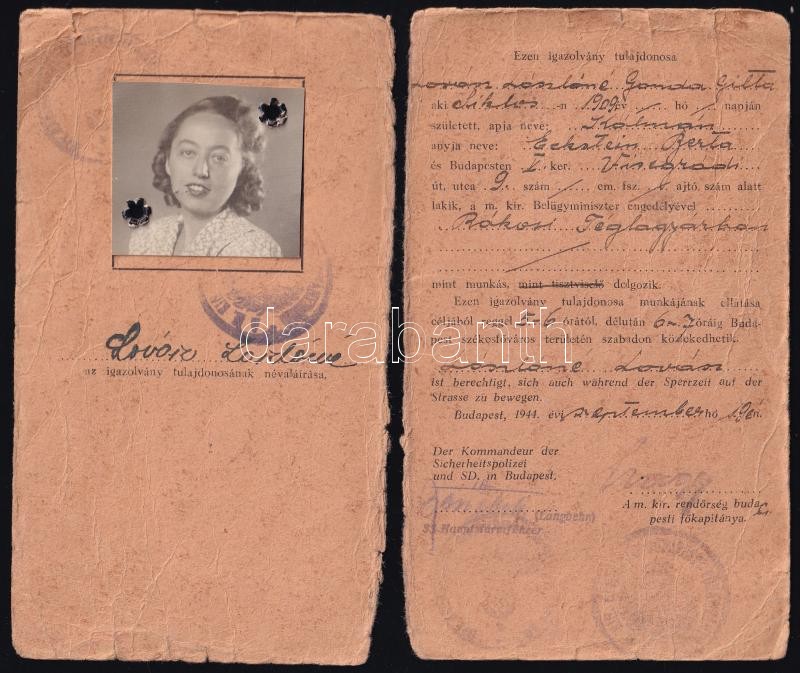 Lovász Lászlóné
az igazolvány tulajdonosának névaláirása.
darabanth
Ezen igazolvány tulajdonosa
Lászlóné Gonda Gitta
aki Siklós -n 1909 év hó napján
született, apja neve: Kálmán
anyja neve: Eckstein Berta
és Budapesten ker. Visegrádi
út, utca 9. szám em. fsz. ajtó szám alatt
lakik, a m. kir. Belügyminiszter engedélyével
Rákosi Téglagyárban
mint munkás, mint tisztviselő dolgozik.
Ezen igazolvány tulajdonosa munkájának ellátása
céljából reggel 5-6 órától, délután 6-7 óráig Buda-
pest székesfőváros területén szabadon közlekedhetik.
Lászlóné
ist berechtigt, sich auch während der Sperrzeit auf der
Strasse zu bewegen.
Budapest, 1944. évi szeptember hó 19 én.
Der Kommandeur der
Sicherheitspolizei
und SD. in Budapest.
(Langbehn)
SS-Hauptsturmführer
A m. kir. rendőrség buda-
pesti főkapitánya.